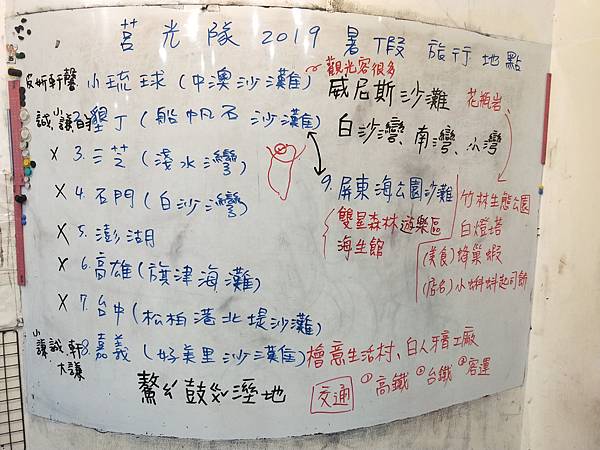 莒光隊 2019 暑假 旅行地點
妍軒馨 小琉球(中澳沙灘) 觀光客很多
威尼斯沙灘 花瓶岩
誠、小謙 2.墾丁(船帆石沙灘)
白沙灣、南灣、小灣
x 3.三芝(淺水灣)
x 4.石門(白沙灣)
9.屏東海公園沙灘
雙星森林遊樂區
海生館
竹林生態公園
白燈塔
(美食)蜂巢蝦
(店名)小蝌蚪起司餅
x 5.澎湖
x 6.高雄(旗津海灘)
x 7.台中(松柏港北堤沙灘)
小謙 誠、軒 大謙 8.嘉義(好美里沙灘)檜意生活村、白人牙膏工廠
鰲ㄠˊ鼓ㄍㄨˇ溼地
交通 ①高鐵 ②台鐵 ③客運